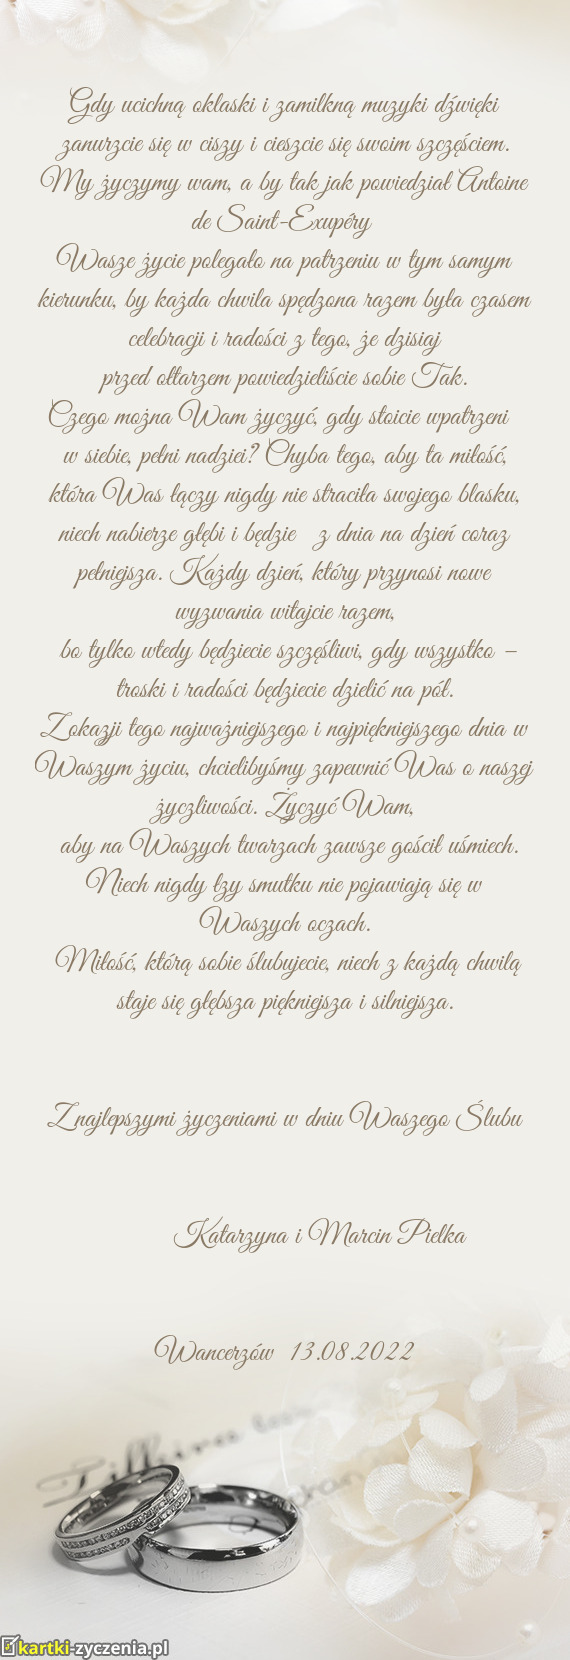 Gdy ucichną oklaski i zamilkną muzyki dźwięki
zanurzcie się w ciszy i cieszcie się swoim szczęściem.
My życzymy wam, a by tak jak powiedział Antoine
de Saint-Exupéry
Wasze życie polegało na patrzeniu w tym samym
kierunku, by każda chwila spędzona razem była czasem
celebracji i radości z tego, że dzisiaj
przed ołtarzem powiedzieliście sobie Tak.
Czego można Wam życzyć, gdy stoicie wpatrzeni
w siebie, pełni nadziei? Chyba tego, aby ta miłość,
która Was łączy nigdy nie straciła swojego blasku,
niech nabierze głębi i będzie z dnia na dzień coraz
pełniejsza. Każdy dzień, który przynosi nowe
wyzwania witajcie razem,
bo tylko wtedy będziecie szczęśliwi, gdy wszystko –
troski i radości będziecie dzielić na pół.
Z okazji tego najważniejszego i najpiękniejszego dnia w
Waszym życiu, chcielibyśmy zapewnić Was o naszej
życzliwości. Życzyć Wam,
aby na Waszych twarzach zawsze gościł uśmiech.
Niech nigdy łzy smutku nie pojawiają się w
Waszych oczach.
Miłość, którą sobie ślubujecie, niech z każdą chwilą
staje się głębsza piękniejsza i silniejsza.
Z najlepszymi życzeniami w dniu Waszego Ślubu
Katarzyna i Marcin Pielka
Wancerzów 13.08.2022
kartki-zyczenia.pl